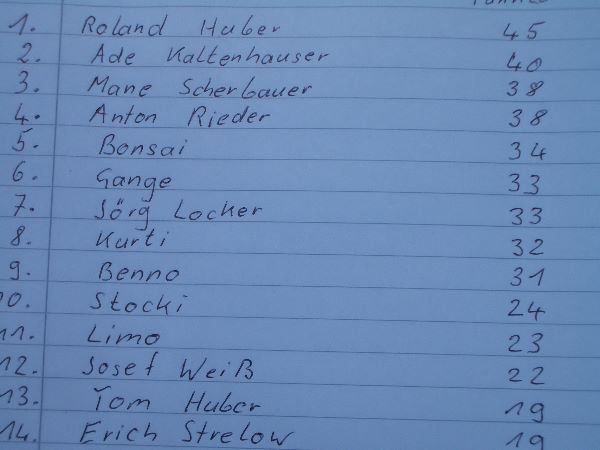 1. Roland Huber 45
2. Ade Kaltenhauser 40
3. Mane Scherbauer 38
4. Anton Rieder 38
5. Bonsai 34
6. Gange 33
7. Jörg Locker 33
8. Kurti 32
9. Benno 31
10. Stocki 24
11. Limo 23
12. Josef Weiß 22
13. Tom Huber 19
14. Erich Strelow 19